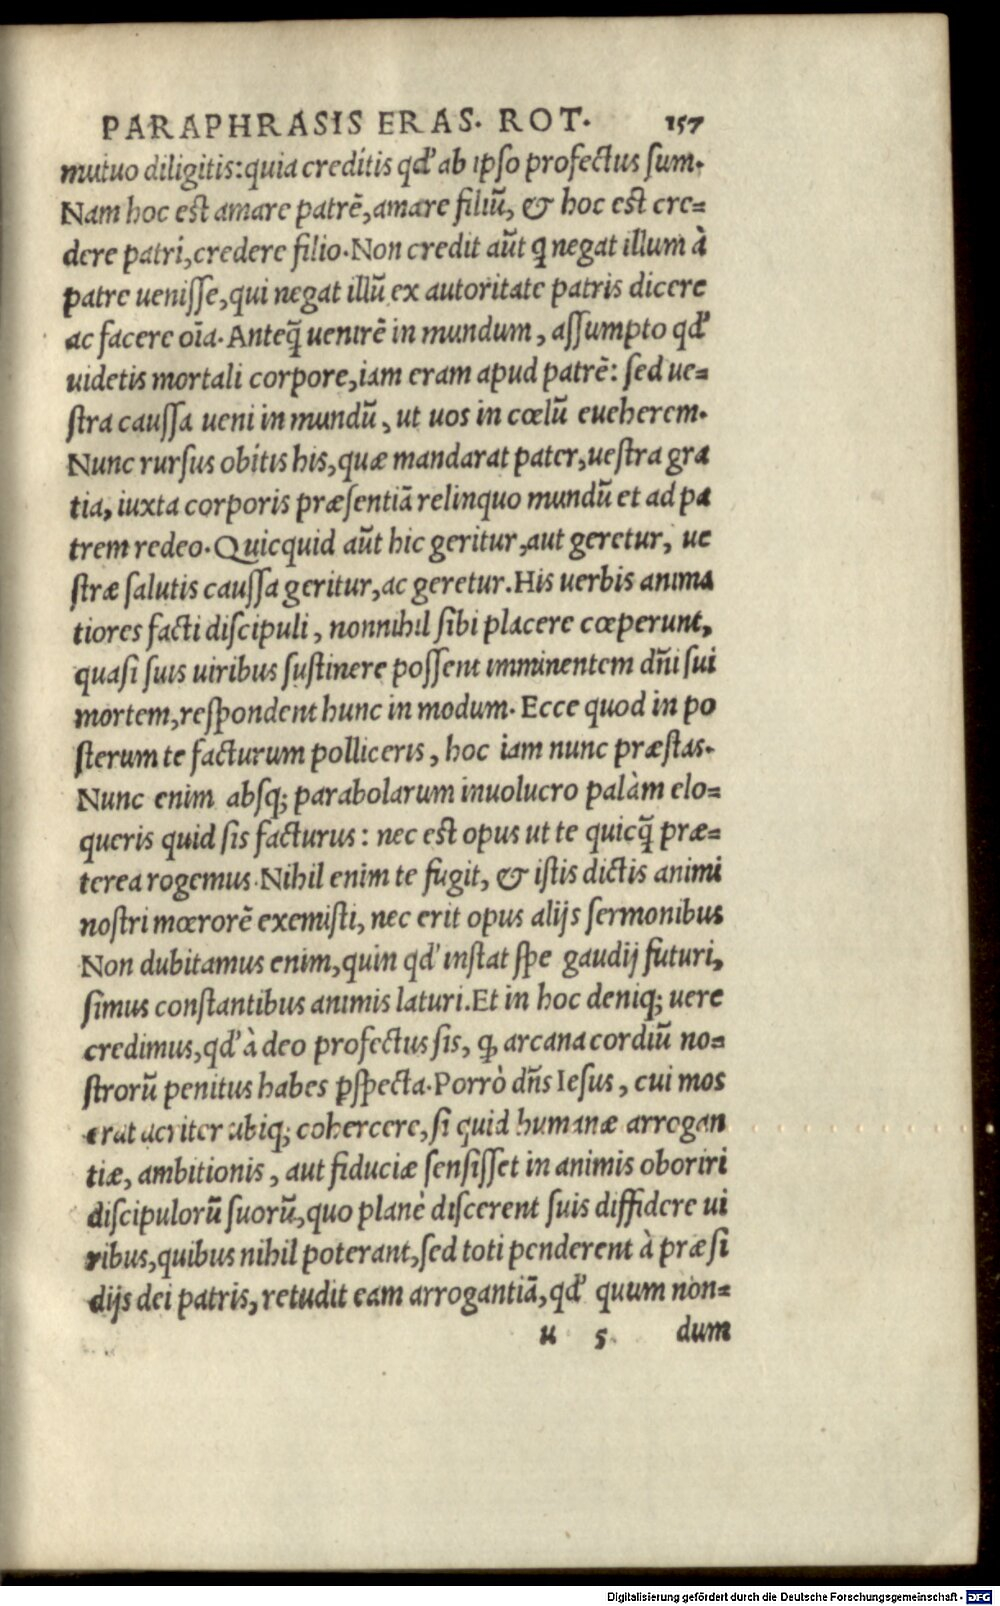 PARAPHRASIS ERAS. ROT. 157
mutuo diligitis: quia creditis qđ ab ipso profectus sum.
Nam hoc est amare patrẽ, amare filiũ, & hoc est cre=
dere patri, credere filio. Non credit aũt q negat illum à
patre uenisse, qui negat illũ ex autoritate patris dicere
ac facere oĩa. Anteq̃ uenirẽ in mundum, assumpto qđ
uidetis mortali corpore, iam eram apud patrẽ: sed ue=
stra caussa ueni in mundũ, ut uos in cœlũ eueherem.
Nunc rursus obitis his, quæ mandarat pater, uestra gra
tia, iuxta corporis præsentiã relinquo mundũ et ad pa
trem redeo. Quicquid aũt hic geritur, aut geretur, ue
stræ salutis caussa geritur, ac geretur. His uerbis anima
tiores facti discipuli, nonnihil sibi placere cœperunt,
quasi suis uiribus sustinere possent imminentem dñi sui
mortem, respondent hunc in modum. Ecce quod in po
sterum te facturum polliceris, hoc iam nunc præstas.
Nunc enim absq; parabolarum inuolucro palàm elo=
queris quid sis facturus: nec est opus ut te quicq̃ præ=
terea rogemus. Nihil enim te fugit, & istis dictis animi
nostri mœrorẽ exemisti, nec erit opus alijs sermonibus
Non dubitamus enim, quin qđ instat spe gaudij futuri,
simus constantibus animis laturi. Et in hoc deniq; uere
credimus, qđ à deo profectus sis, ꝙ arcana cordiũ no=
strorũ penitus habes ꝑspecta. Porrò dñs Iesus, cui mos
erat acriter ubiq; cohercere, si quid humanæ arrogan
tiæ, ambitionis, aut fiduciæ sensisset in animis oboriri
discipulorũ suorũ, quo planè discerent suis diffidere ui
ribus, quibus nihil poterant, sed toti penderent à præsi
dijs dei patris, retudit eam arrogantiã, qđ quum non=
u 5 dum
Digitalisierung gefördert durch die Deutsche Forschungsgemeinschaft - DFG